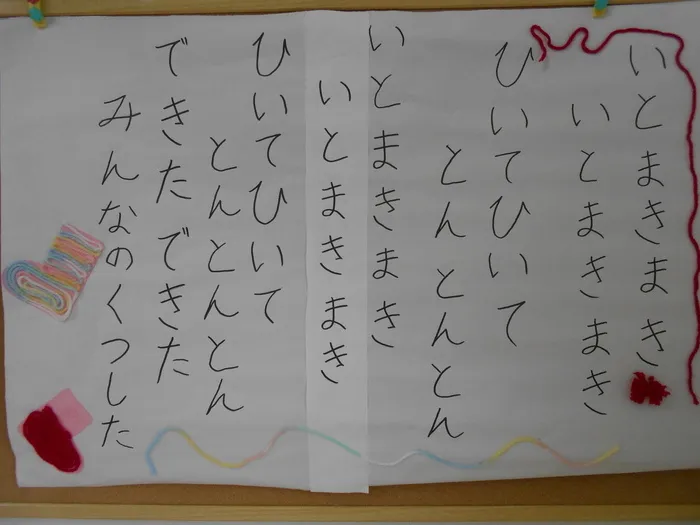 いとまきまき
いとまきまき
ひいてひいて
とんとんとん
いとまきまき
いとまきまき
ひいてひいて
とんとんとん
できたできた
みんなのくつした